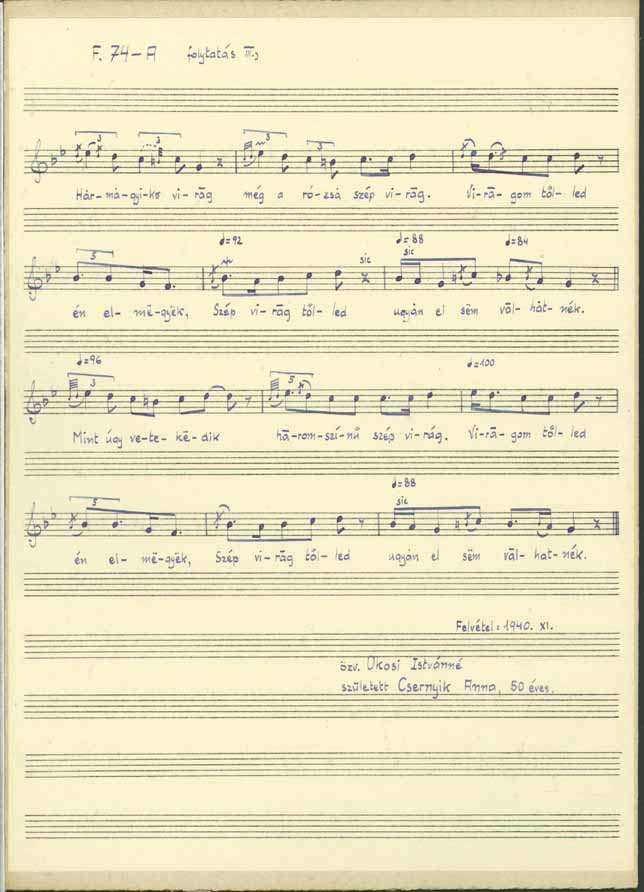 F. 74-A folytatás III.,
3 3 3 3
Hár-má-gyi-kó vi-rág még a ró-zsá szép vi-rág. Vi-rá-gom től-led
5 ♩=92 sic ♩=88 sic ♩=84
én el-më-gyëk, Szép vi-rág től-led ugyán el sëm vál-hát-nék.
♩=96 3 5 ♩=100
Mint úgy ve-te-kë-dik há-rom-szí-nű szép vi-rág. Vi-rá-gom től-led
5 ♩=88 sic
én el-më-gyëk, Szép vi-rág től-led ugyán el sëm vál-hat-nék.
Felvétel: 1940. XI.
özv. Okosi Istvánné
született Csernyik Anna, 50 éves.